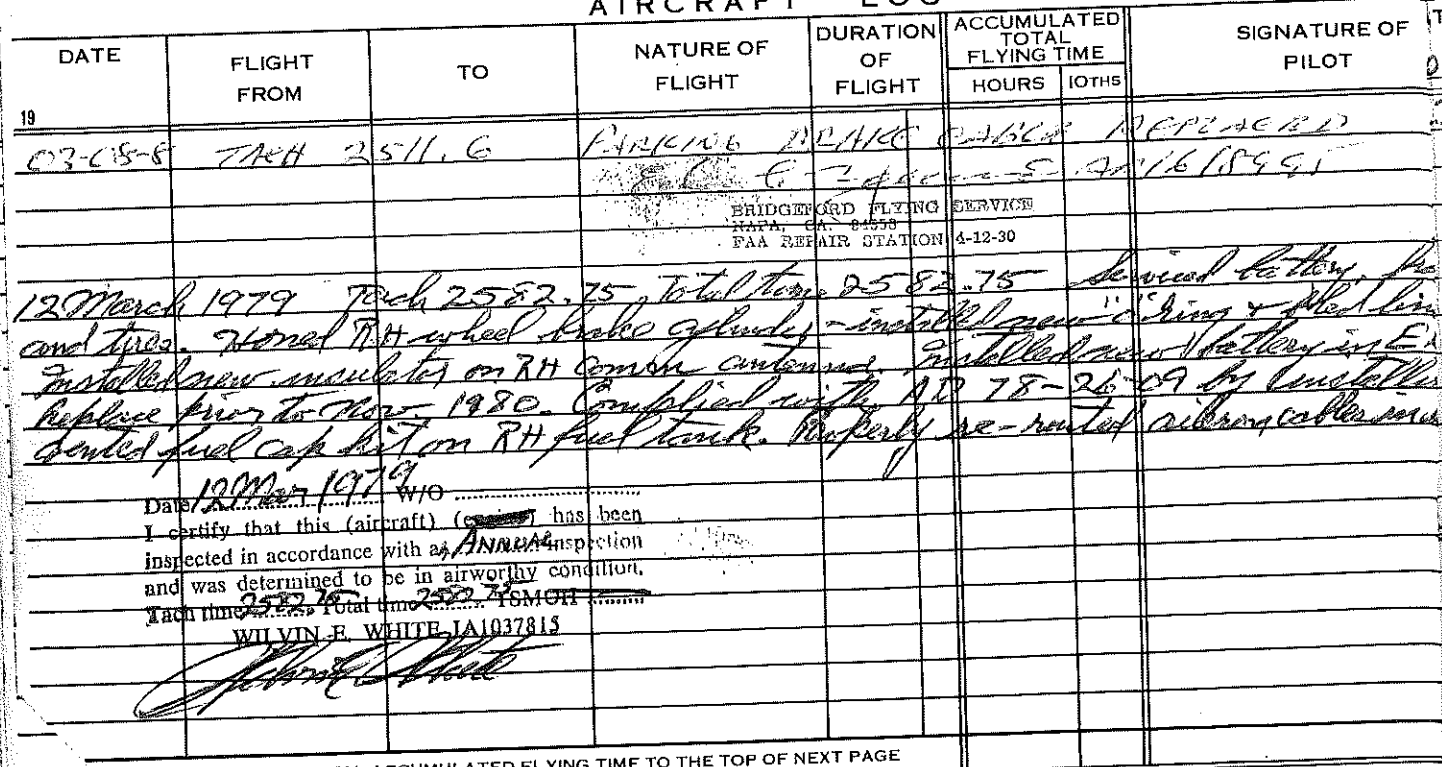 AIRCRAFT LOG
DATE
FLIGHT FROM
TO
NATURE OF FLIGHT
DURATION OF FLIGHT
ACCUMULATED TOTAL FLYING TIME
HOURS 10THS
SIGNATURE OF PILOT
19
03-08-8 TACH 2511.6 PARKING BRAKE CABLE REPLACED
BRIDGEFORD FLYING SERVICE
NAPA, CA. 94558
FAA REPAIR STATION 4-12-30
12 March 1979 Tach 2582.75, Total time 2582.75 Serviced battery,
and tires. Honed RH wheel brake cylinder - installed new "O" ring &
Installed new insulator on RH comm antenna. Installed new battery in
Replace prior to Nov. 1980. Complied with AD 78-26-09 by
vented fuel cap kit on RH fuel tank. Properly re-routed aileron cables in
Date 12 Mar 1979 W/O
I certify that this (aircraft) (engine) has been
inspected in accordance with an ANNUAL inspection
and was determined to be in airworthy condition.
Tach time 2582.75 Total time 2582.75 TSMOH
WILVIN E. WHITE IA1037815
ACCUMULATED FLYING TIME TO THE TOP OF NEXT PAGE